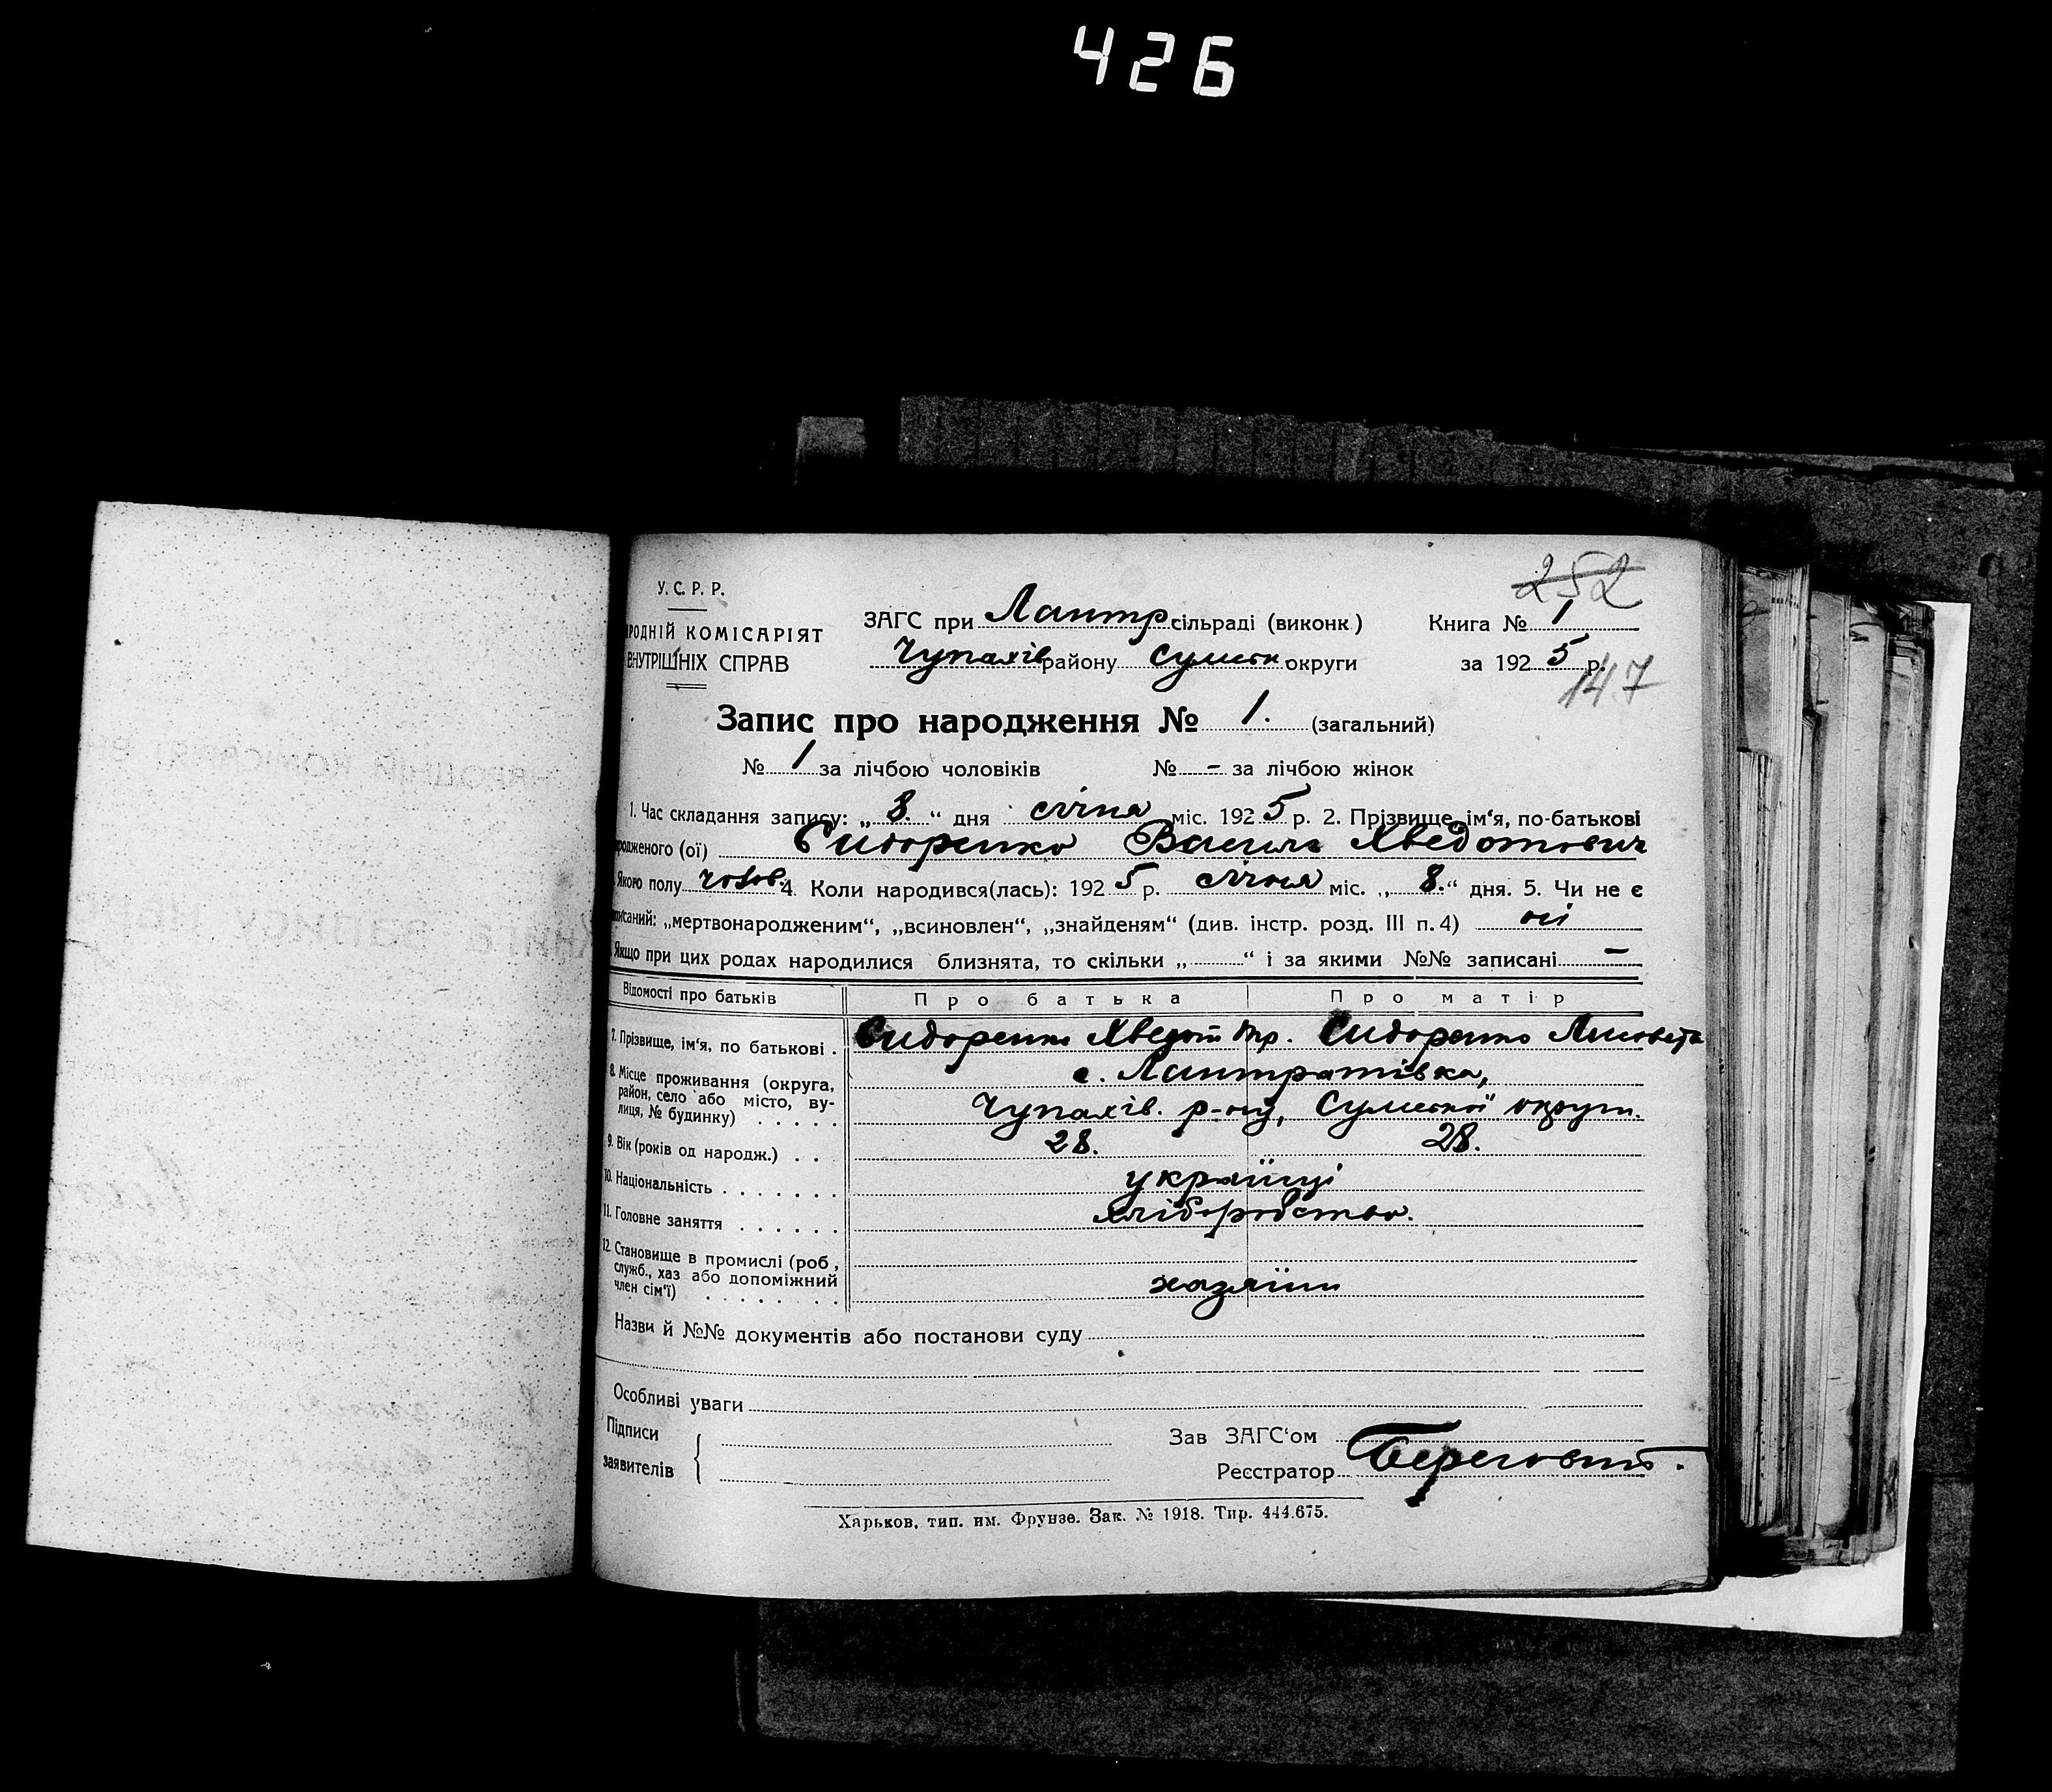 426
252
У. С. Р. Р.
РОДНІЙ КОМІСАРІЯТ
ВНУТРІШНІХ СПРАВ
ЗАГС при Лантр. сільраді (виконк.) Книга № 1
Чупахів району Сумськ округи за 1925 р.
147
Запис про народження № 1. (загальний)
№ 1 за лічбою чоловіків № - за лічбою жінок
1. Час складання запису: „8.“ дня січня міс. 1925 р. 2. Прізвище, ім‘я, по-батькові
родженого (ої) Сидоренко Василь Хведотович
Якою полу чолов. 4. Коли народився(лась): 1925 р. січня міс. „8.“ дня. 5. Чи не є
писаний: „мертвонародженим“, „всиновлен“, „знайденям“ (див. інстр. розд. III п. 4) ні
Якщо при цих родах народилися близнята, то скільки „ “ і за якими №№ записані -
Відомості про батьків Про батька Про матір
7. Прізвище, ім‘я, по батькові . Сидоренко Хведот Сидоренко Лисовета
8. Місце проживання (округа, с. Лантратівка,
район, село або місто, ву-
лиця, № будинку) . . . . . Чупахів. р-ну, Сумської округи.
9. Вік (років од народж.) . . 28. 28.
10. Національність . . . . . . . українці
11. Головне заняття . . . . . . хліборобство.
12. Становище в промислі (роб.,
служб., хаз. або допоміжний
член сім‘ї) . . . . . . . хазяїни
Назви й №№ документів або постанови суду
Особливі уваги
Підписи
заявителів
Зав ЗАГС‘ом
Реєстратор Береговий.
Харьков, тип. им. Фрунзе. Зак. № 1918. Тир. 444.675.